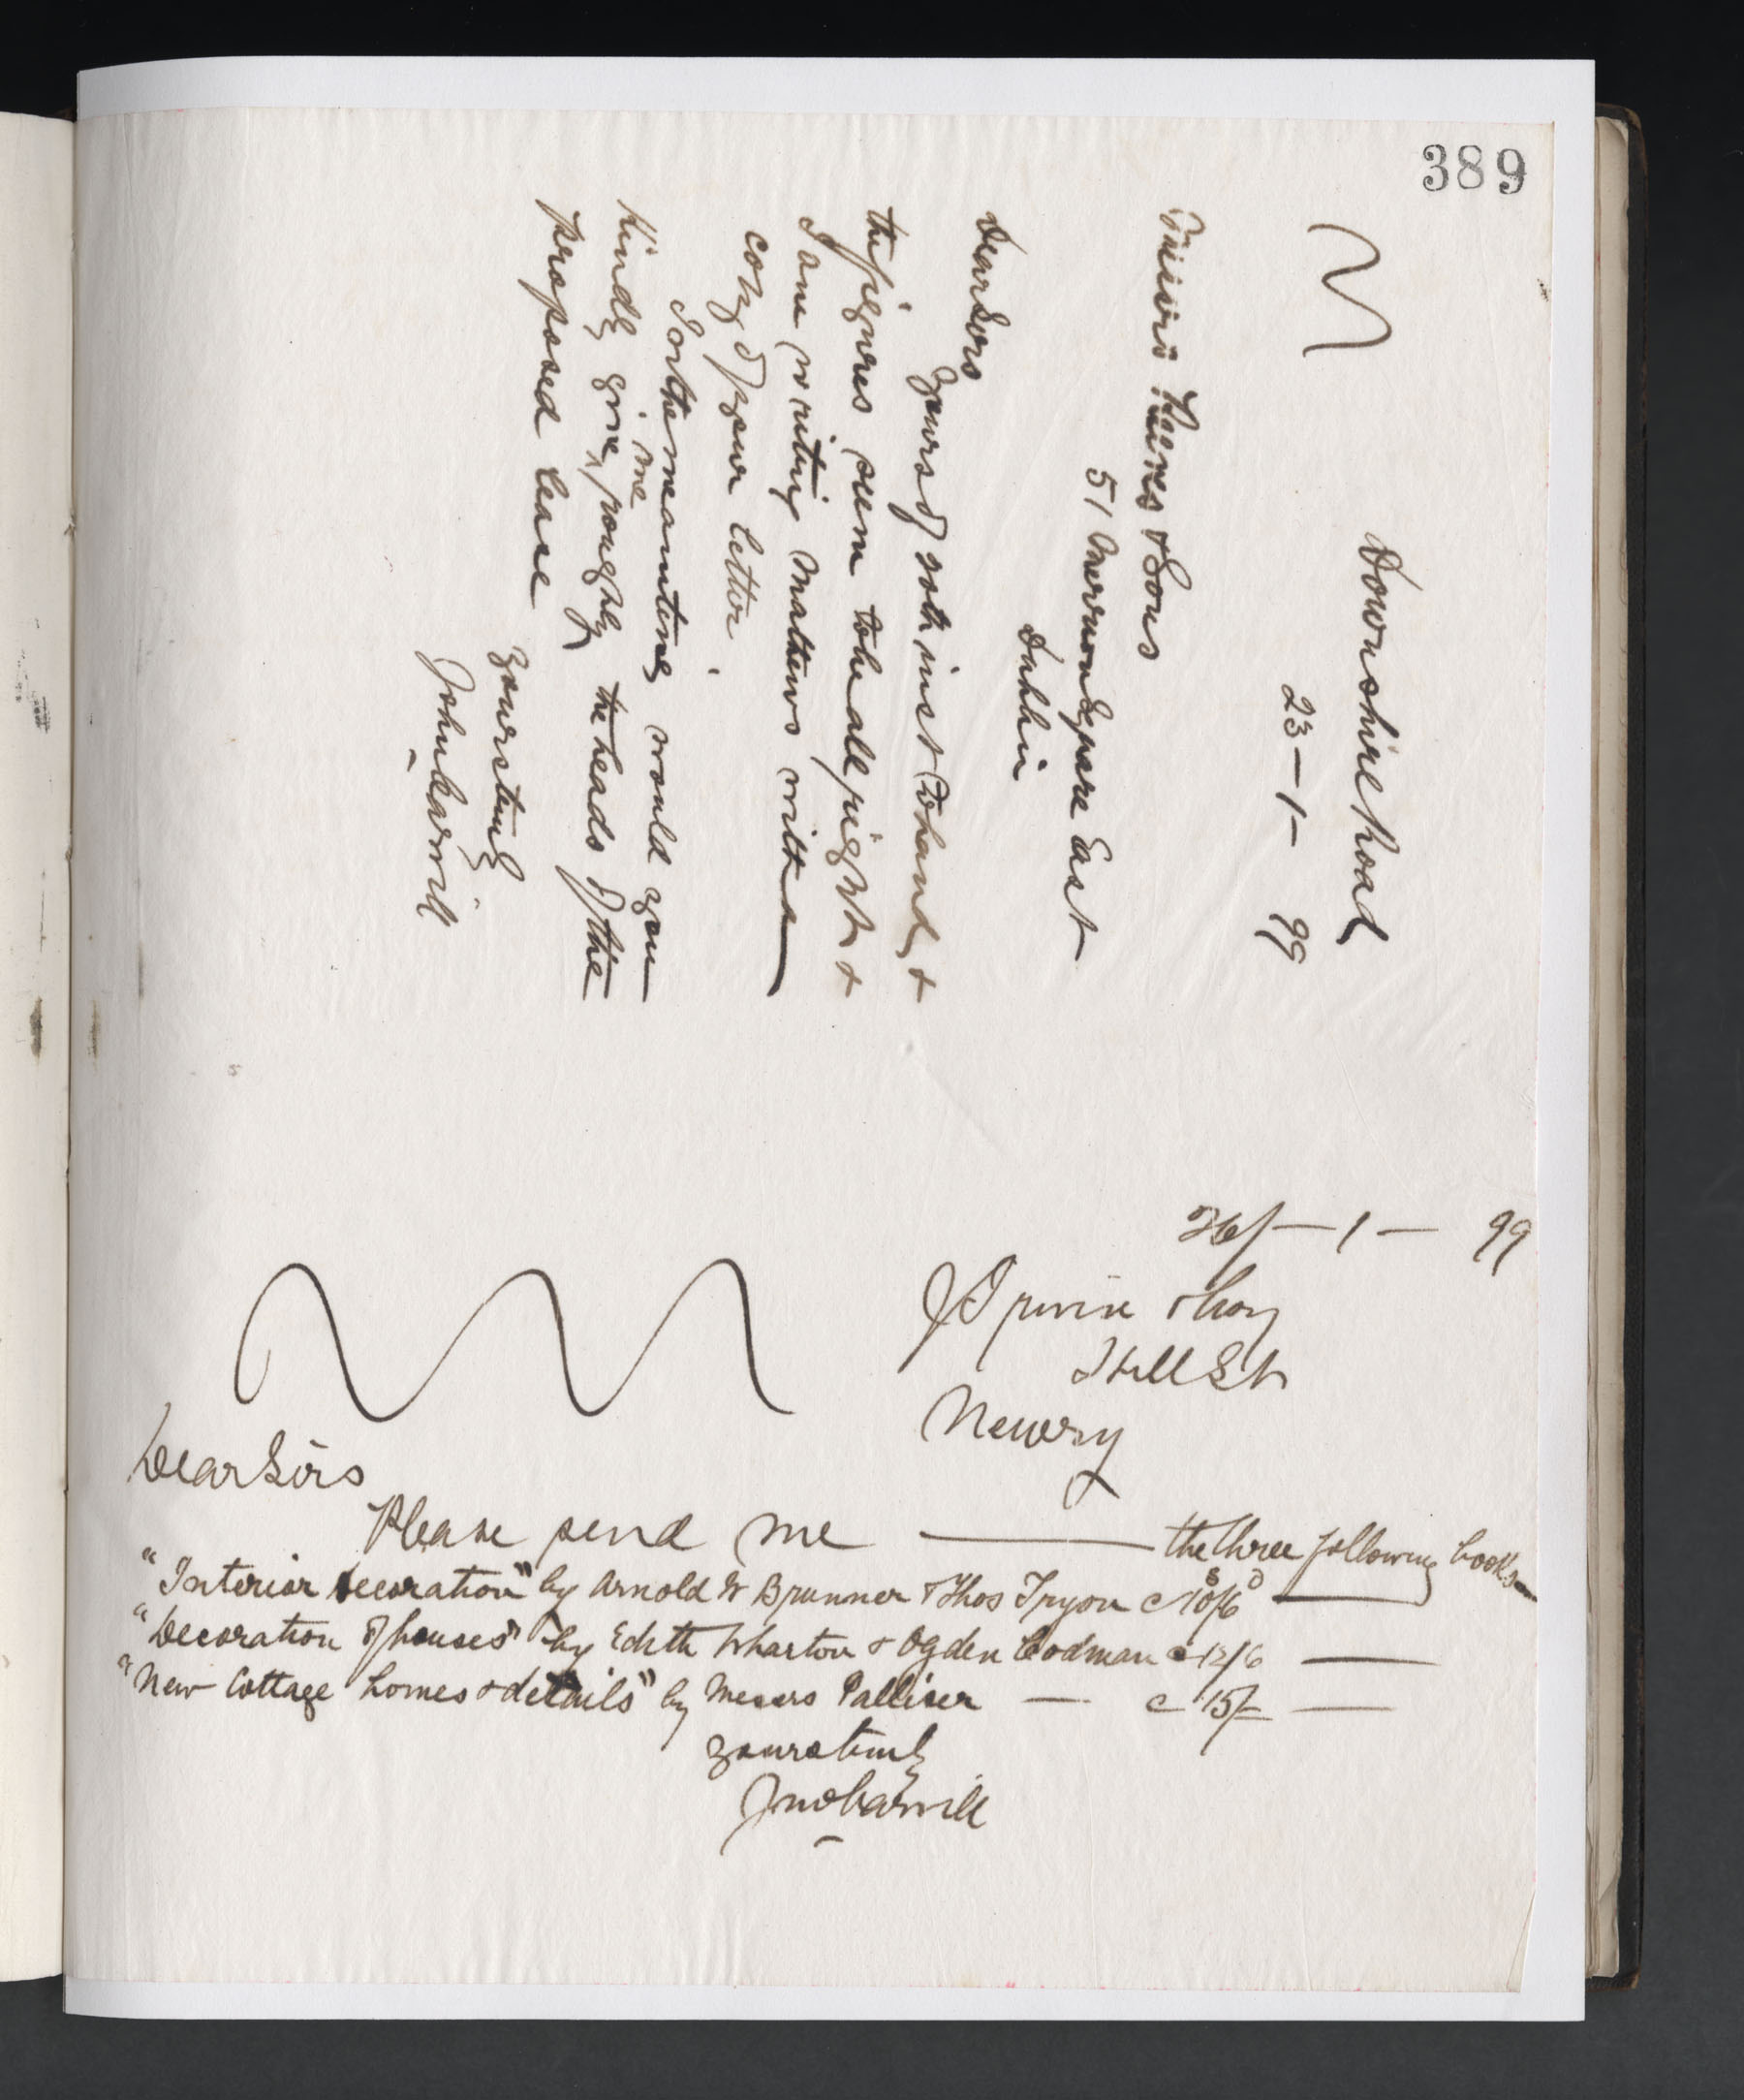 389
Downshire Road
23-1-99
Messrs & Sons
51 Merrion Square East
Dublin
Dear Sirs
Yours of 20th inst to hand, &
the figures seem to be all right &
I am writing Mathews with a
copy of your letter.
In the meantime would you
kindly give me roughly the heads of the
proposed lease
Yours truly
John Carvill
26/-1-99
J Irwin & Coy
Hill St
Newry
Dear Sirs
Please send me — the three following books
"Interior Decoration" by Arnold W Brunner & Thos Tryon c 10s/6d —
"Decoration of houses" by Edith Wharton & Ogden Codman c 12/6 —
"New Cottage homes & details" by Messrs Palliser — c 15/- —
Yours truly
Jno Carvill